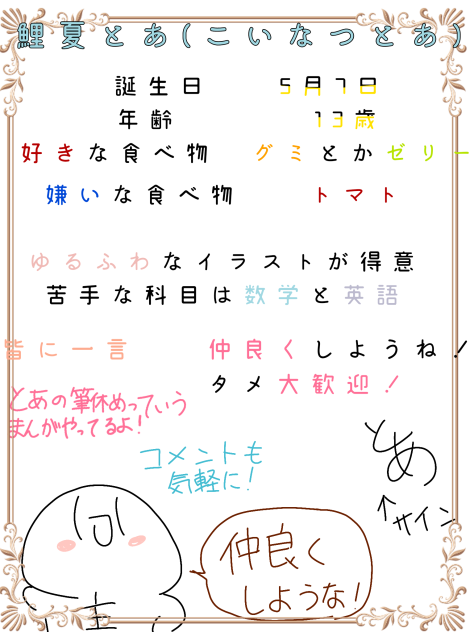 鯉夏とあ(こいなつとあ)
誕生日 5月7日
年齢 13歳
好きな食べ物 グミとかゼリー
嫌いな食べ物 トマト
ゆるふわなイラストが得意
苦手な科目は数学と英語
皆に一言 仲良くしようね！
タメ大歓迎！
とあの筆休めっていう
まんがやってるよ！
コメントも
気軽に！
とあ
↑サイン
仲良く
しような！